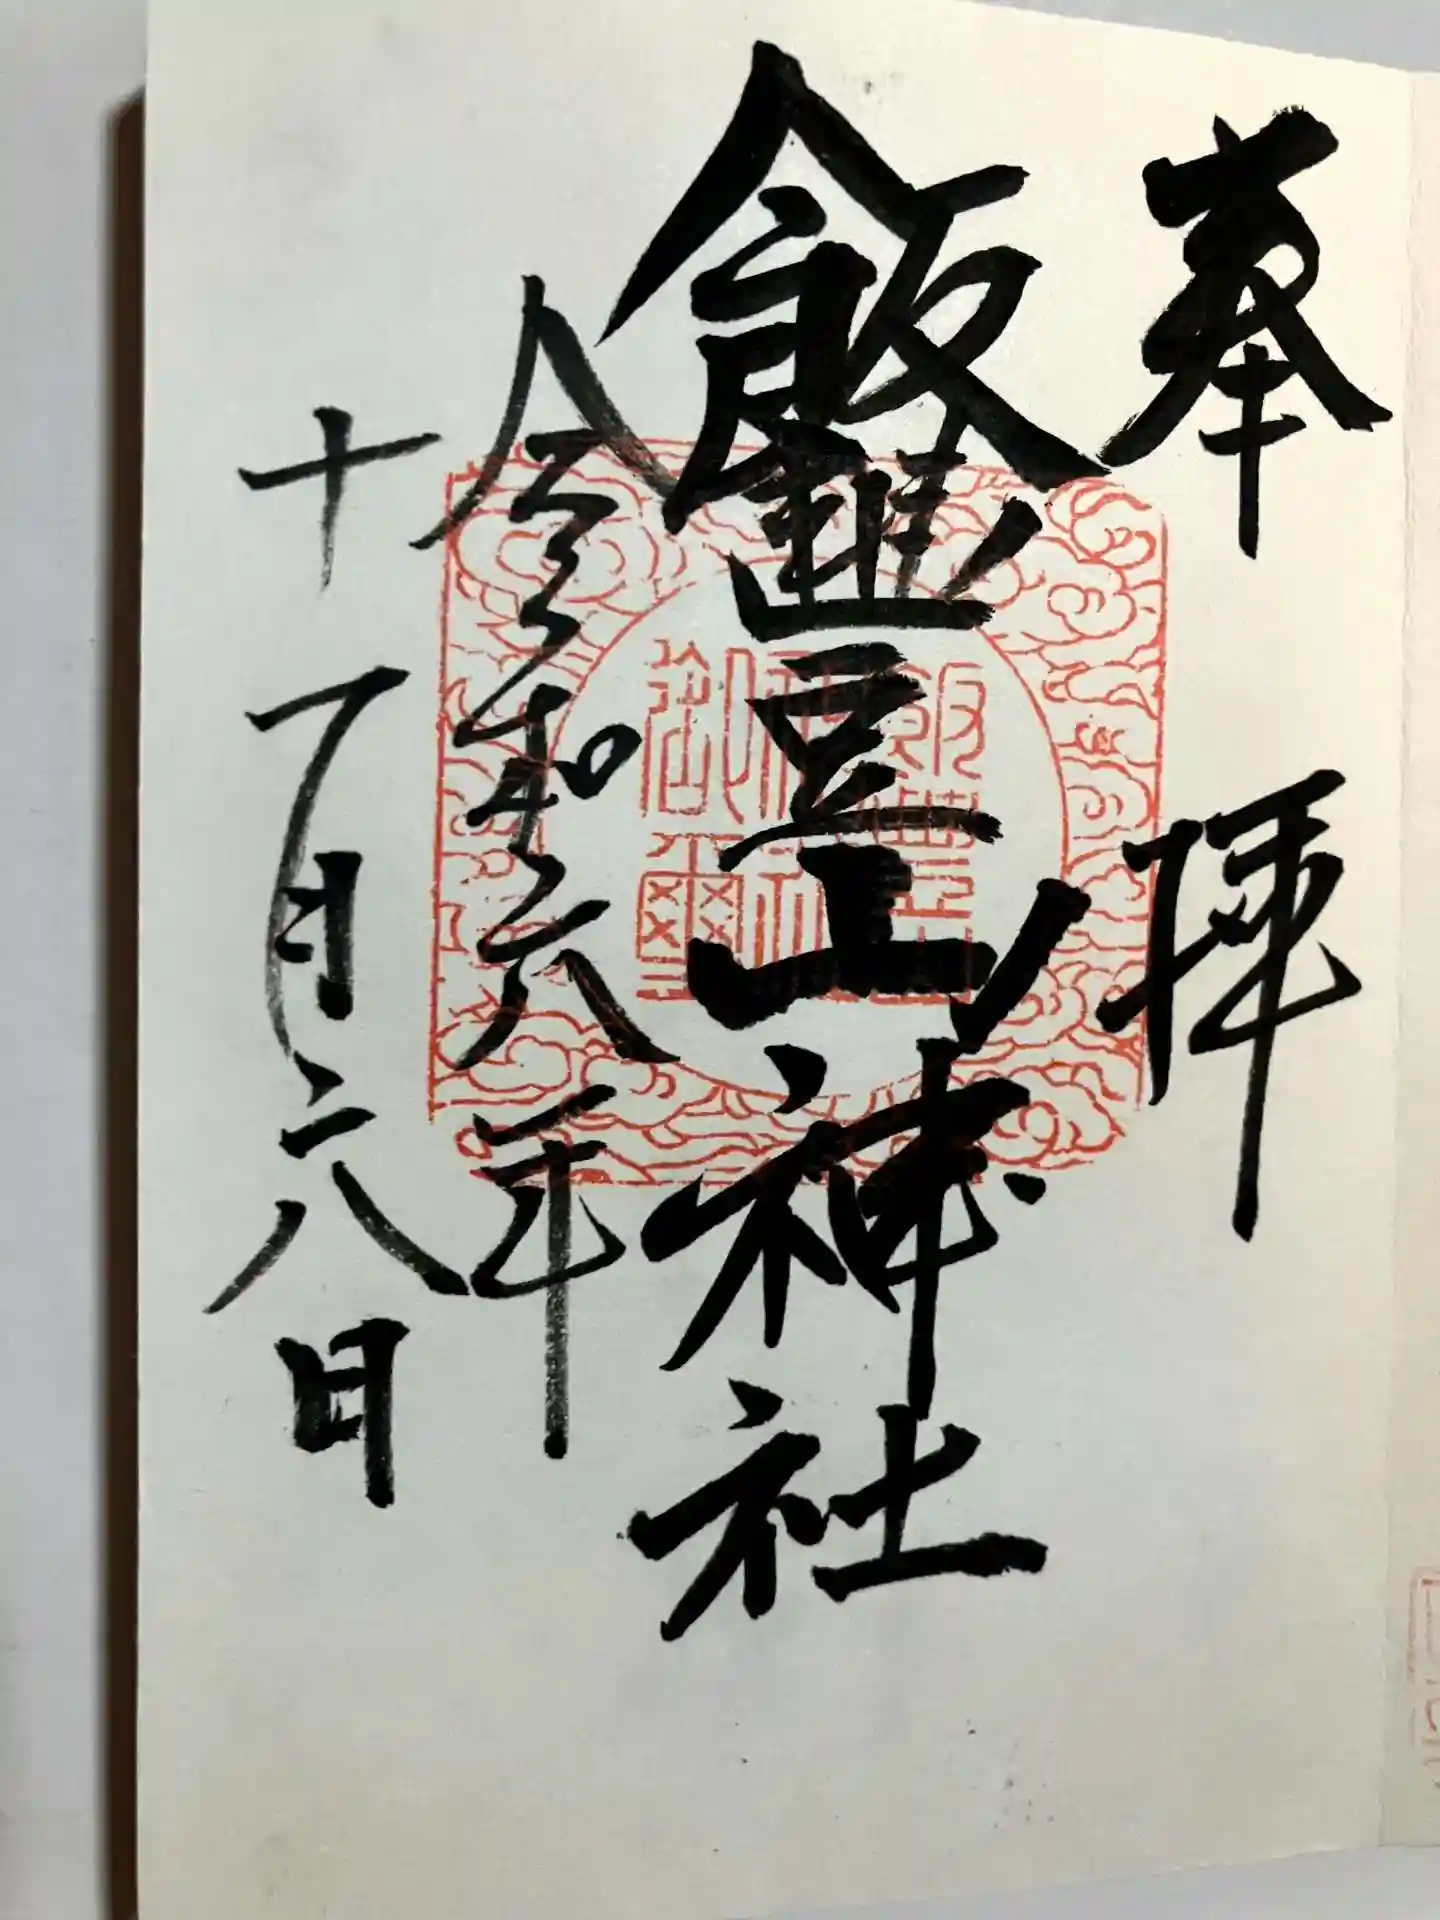 奉拝
飯豐山神社
令和六年
十一月二八日